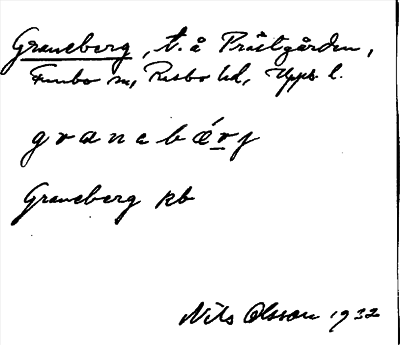 Graneberg, t. å Prästgården,
Funbo sn, Rasbo hd, Upps. l.
granebärj
Graneberg kb
Nils Olsson 1932